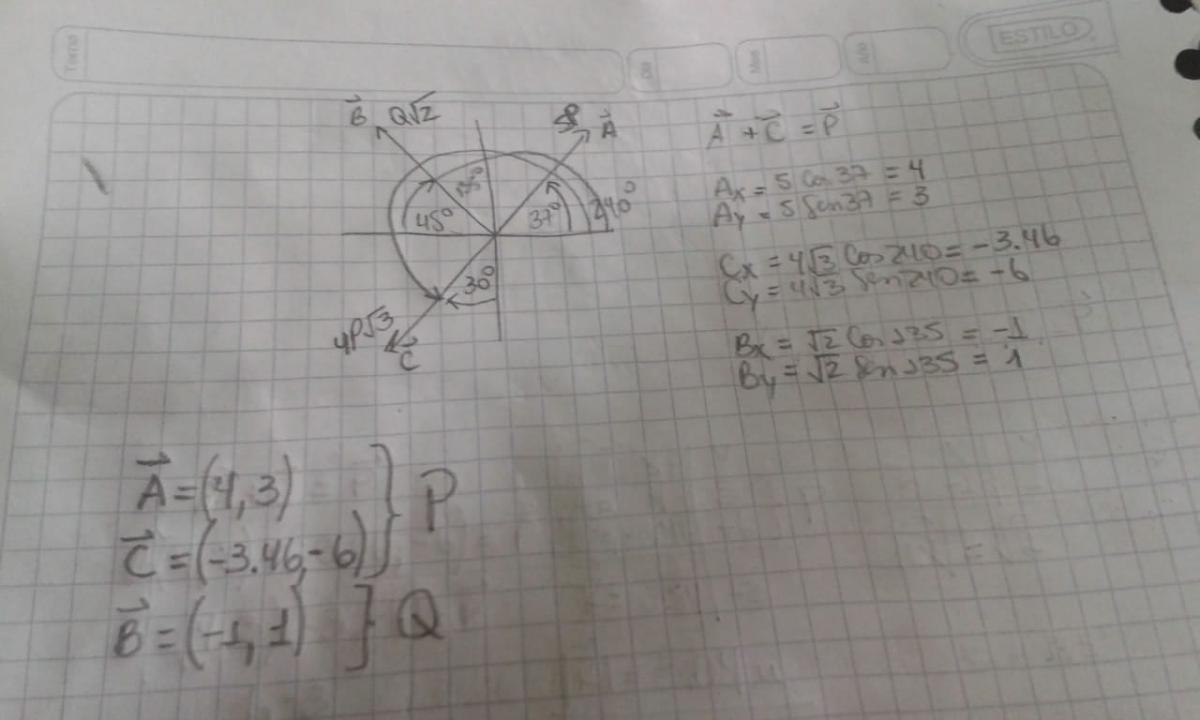 Tema
Día
Mes
Año
ESTILO
B⃗ Q√2
5P A⃗
135°
45°
37°
240°
30°
4P√3
C⃗
A⃗ + C⃗ = P⃗
Ax = 5 Cos 37 = 4
Ay = 5 Sen 37 = 3
Cx = 4√3 Cos 240 = -3.46
Cy = 4√3 Sen 240 = -6
Bx = √2 Cos 135 = -1
By = √2 Sen 135 = 1
A⃗ = (4, 3)
C⃗ = (-3.46, -6) } P
B⃗ = (-1, 1) } Q